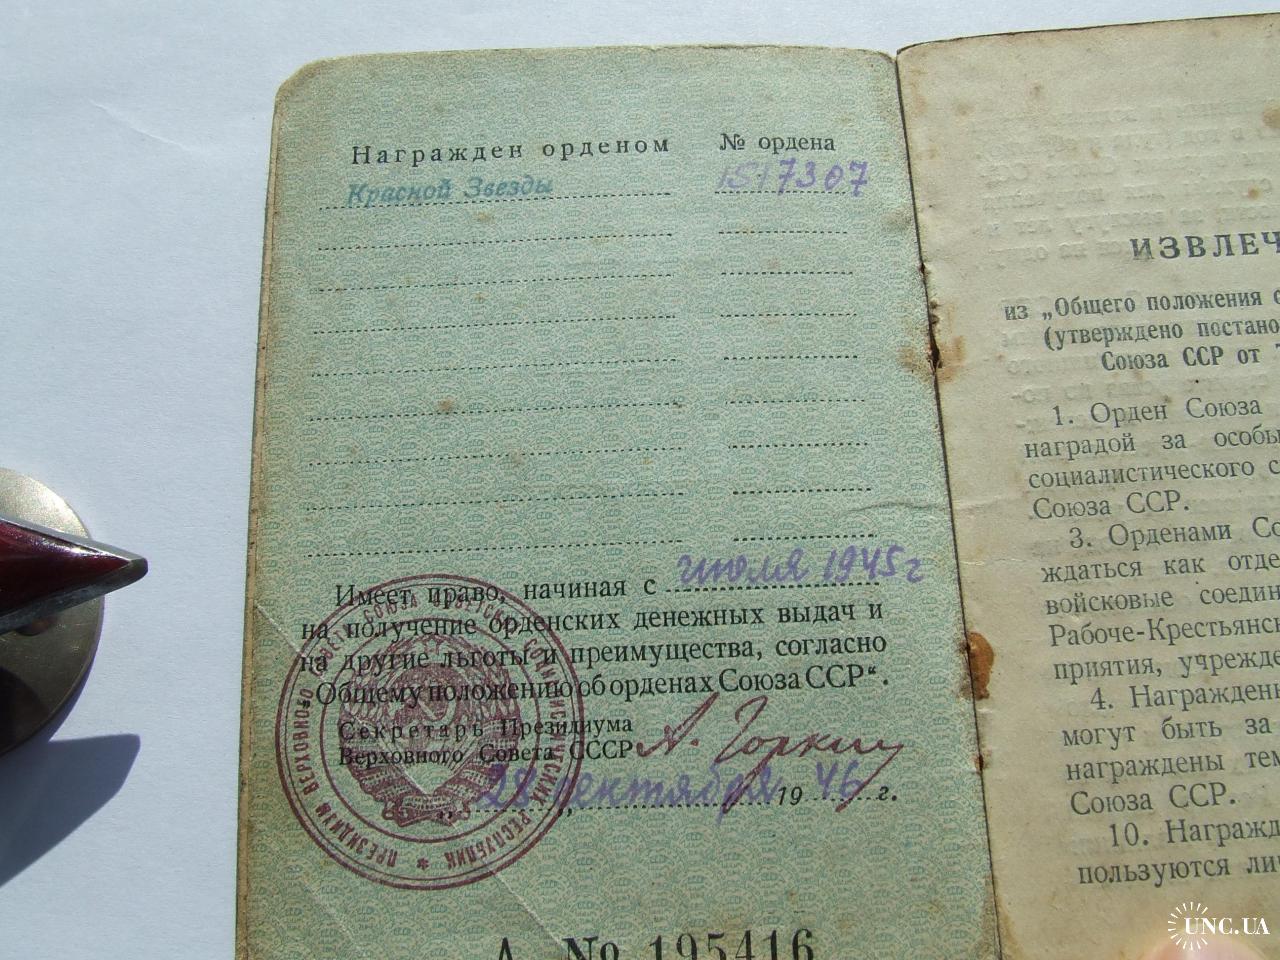 Награжден орденом № ордена
Красной Звезды 1517307
Имеет право, начиная с июля 1945 г
на получение орденских денежных выдач и
на другие льготы и преимущества, согласно
„Общему положению об орденах Союза ССР“.
Секретарь Президиума
Верховного Совета СССР А. Горкин
„28„ сентября 1946 г.
ПРЕЗИДИУМ ВЕРХОВНОГО СОВЕТА СОЮЗА СОВЕТСКИХ СОЦИАЛИСТИЧЕСКИХ РЕСПУБЛИК *
А № 195416
ИЗВЛЕЧ
из „Общего положения о
(утверждено постано
Союза ССР от 7
1. Орден Союза
наградой за особы
социалистического с
Союза ССР.
3. Орденами Со
ждаться как отде
войсковые соедин
Рабоче-Крестьянс
приятия, учрежде
4. Награжденн
могут быть за
награждены тем
Союза ССР.
10. Награжд
пользуются ли
UNC.UA